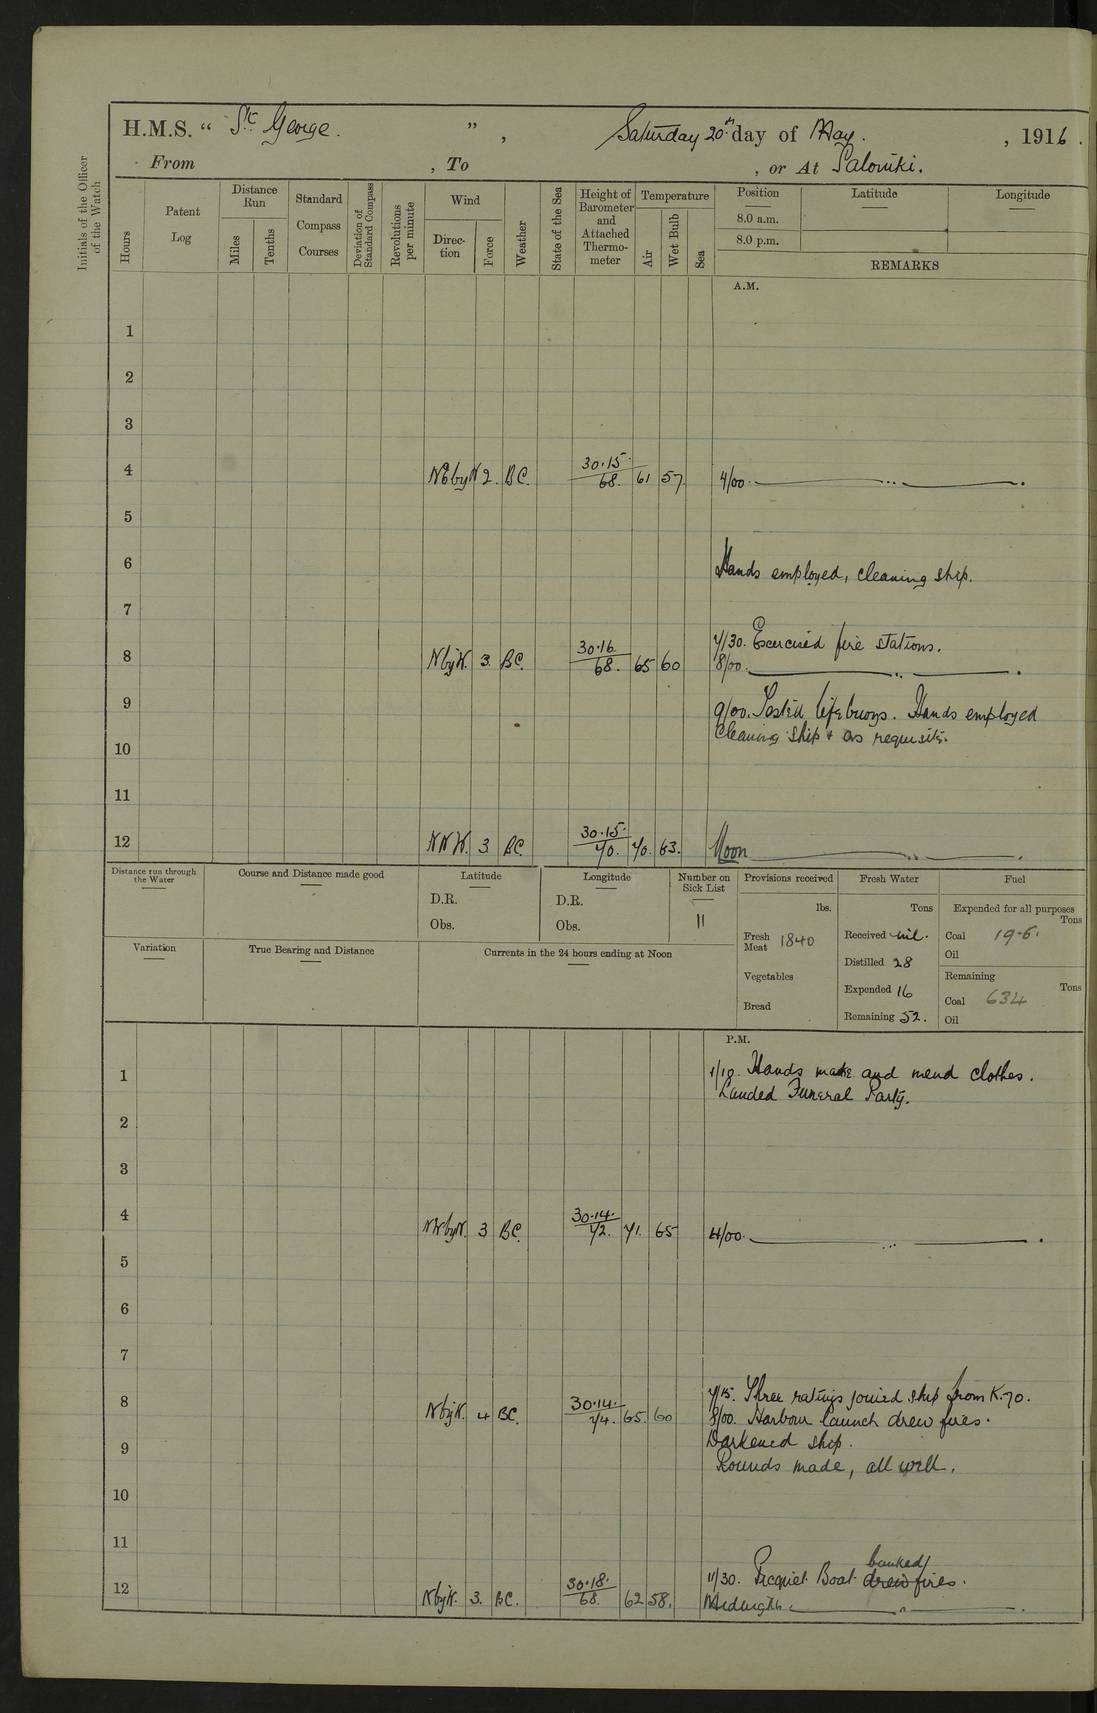 H.M.S. “ St George. ” , Saturday 20th day of May. , 1916 .
From , To , or At Saloniki.
Initials of the Officer of the Watch
Hours
Patent Log
Distance Run
Miles
Tenths
Standard Compass Courses
Deviation of Standard Compass
Revolutions per minute
Wind
Direction
Force
Weather
State of the Sea
Height of Barometer and Attached Thermometer
Temperature
Air
Wet Bulb
Sea
Position Latitude Longitude
8.0 a.m.
8.0 p.m.
REMARKS
A.M.
1
2
3
4 NE by N 2. BC. 30.15. 68. 61 57 4/00.
5
6 Hands employed, cleaning ship.
7
7/30. Exercised fire stations.
8 N by W. 3. BC. 30.16. 68. 65 60 8/00.
9 9/00. Tested lifebuoys. Hands employed
cleaning ship & as requisite.
10
11
12 NNW. 3 BC. 30.15. 70. 70. 63. Noon
Distance run through the Water
Course and Distance made good
Latitude
D.R.
Obs.
Longitude
D.R.
Obs.
Number on Sick List
11
Provisions received
lbs.
Fresh Meat 1840
Vegetables
Bread
Fresh Water
Tons
Received nil.
Distilled 28
Expended 16
Remaining 52.
Fuel
Expended for all purposes
Tons
Coal 19.6.
Oil
Remaining
Tons
Coal 634
Oil
Variation
True Bearing and Distance
Currents in the 24 hours ending at Noon
P.M.
1 1/10. Hands make and mend clothes.
Landed Funeral Party.
2
3
4 NW by N. 3 BC. 30.14. 72. 71. 65 4/00.
5
6
7
7/15. Three ratings joined ship from K.70.
8 N by W. 4 BC. 30.14. 74. 65. 60 8/00. Harbour launch drew fires.
9 Darkened ship.
Rounds made, all well.
10
11
banked/
11/30. Picquet Boat drew fires.
12 N by W. 3. BC. 30.18. 68. 62 58. Midnight